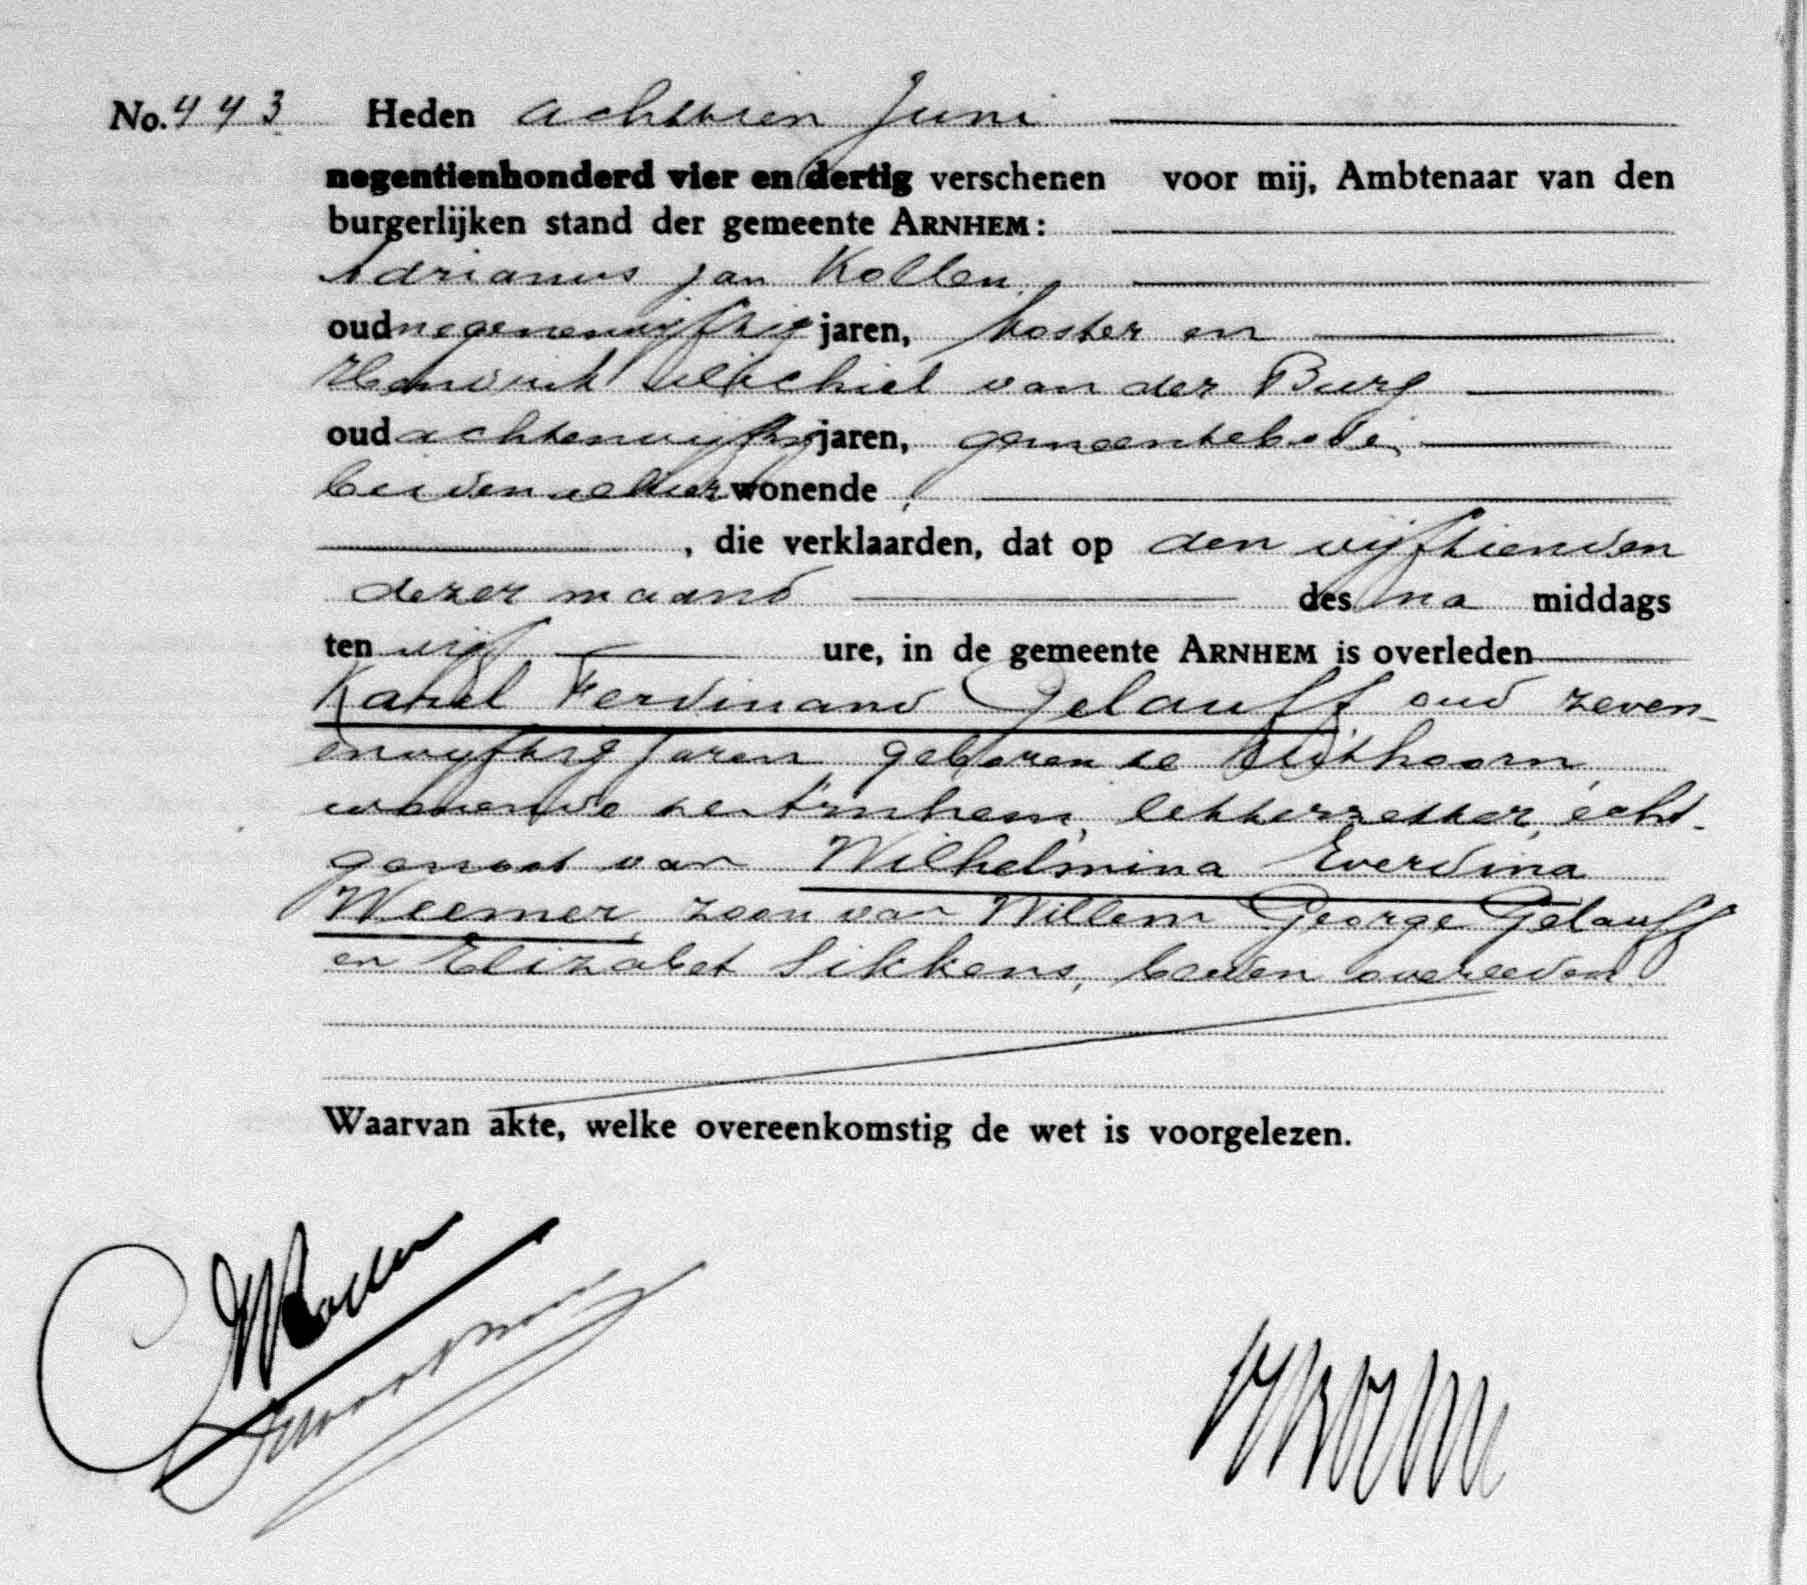 No. 443 Heden achttien Juni
negentienhonderd vier en dertig verschenen voor mij, Ambtenaar van den
burgerlijken stand der gemeente ARNHEM:
Adrianus Jan Kollen,
oud negenenvijftig jaren, koster en
Hendrik Michiel van der Burg
oud achtenvijftig jaren, gemeentebode,
beiden alhier wonende,
, die verklaarden, dat op den vijftienden
dezer maand des na middags
ten vijf ure, in de gemeente ARNHEM is overleden
Karel Ferdinand Gelauff oud zeven-
envijftig jaren, geboren te Uithoorn,
wonende te Arnhem, letterzetter, echt-
genoot van Wilhelmina Everdina
Weemer, zoon van Willem George Gelauff
en Elizabet Sikkens, beiden overleden.
Waarvan akte, welke overeenkomstig de wet is voorgelezen.